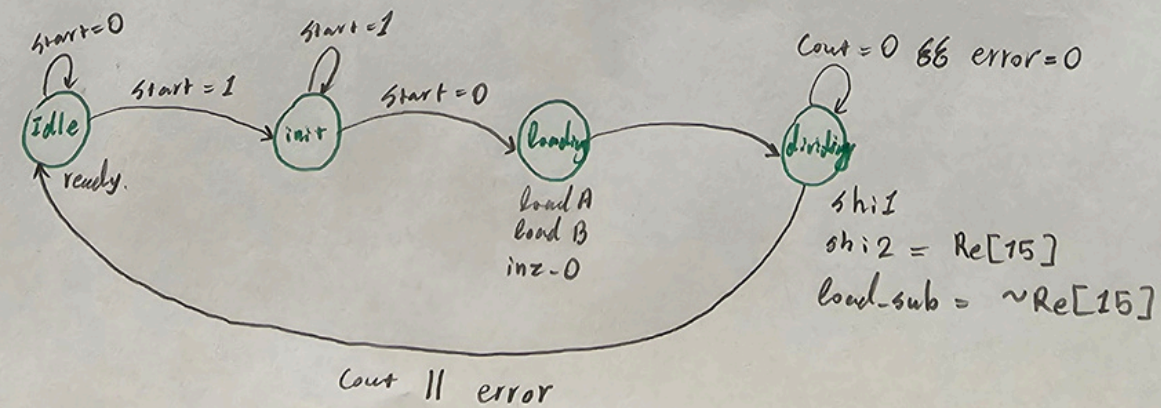 start=0
start=1
start=1
start=0
Cout=0 && error=0
Idle
init
loading
dividing
ready.
load A
load B
inz-0
shi1
shi2 = Re[15]
load-sub = ~Re[15]
Cout || error